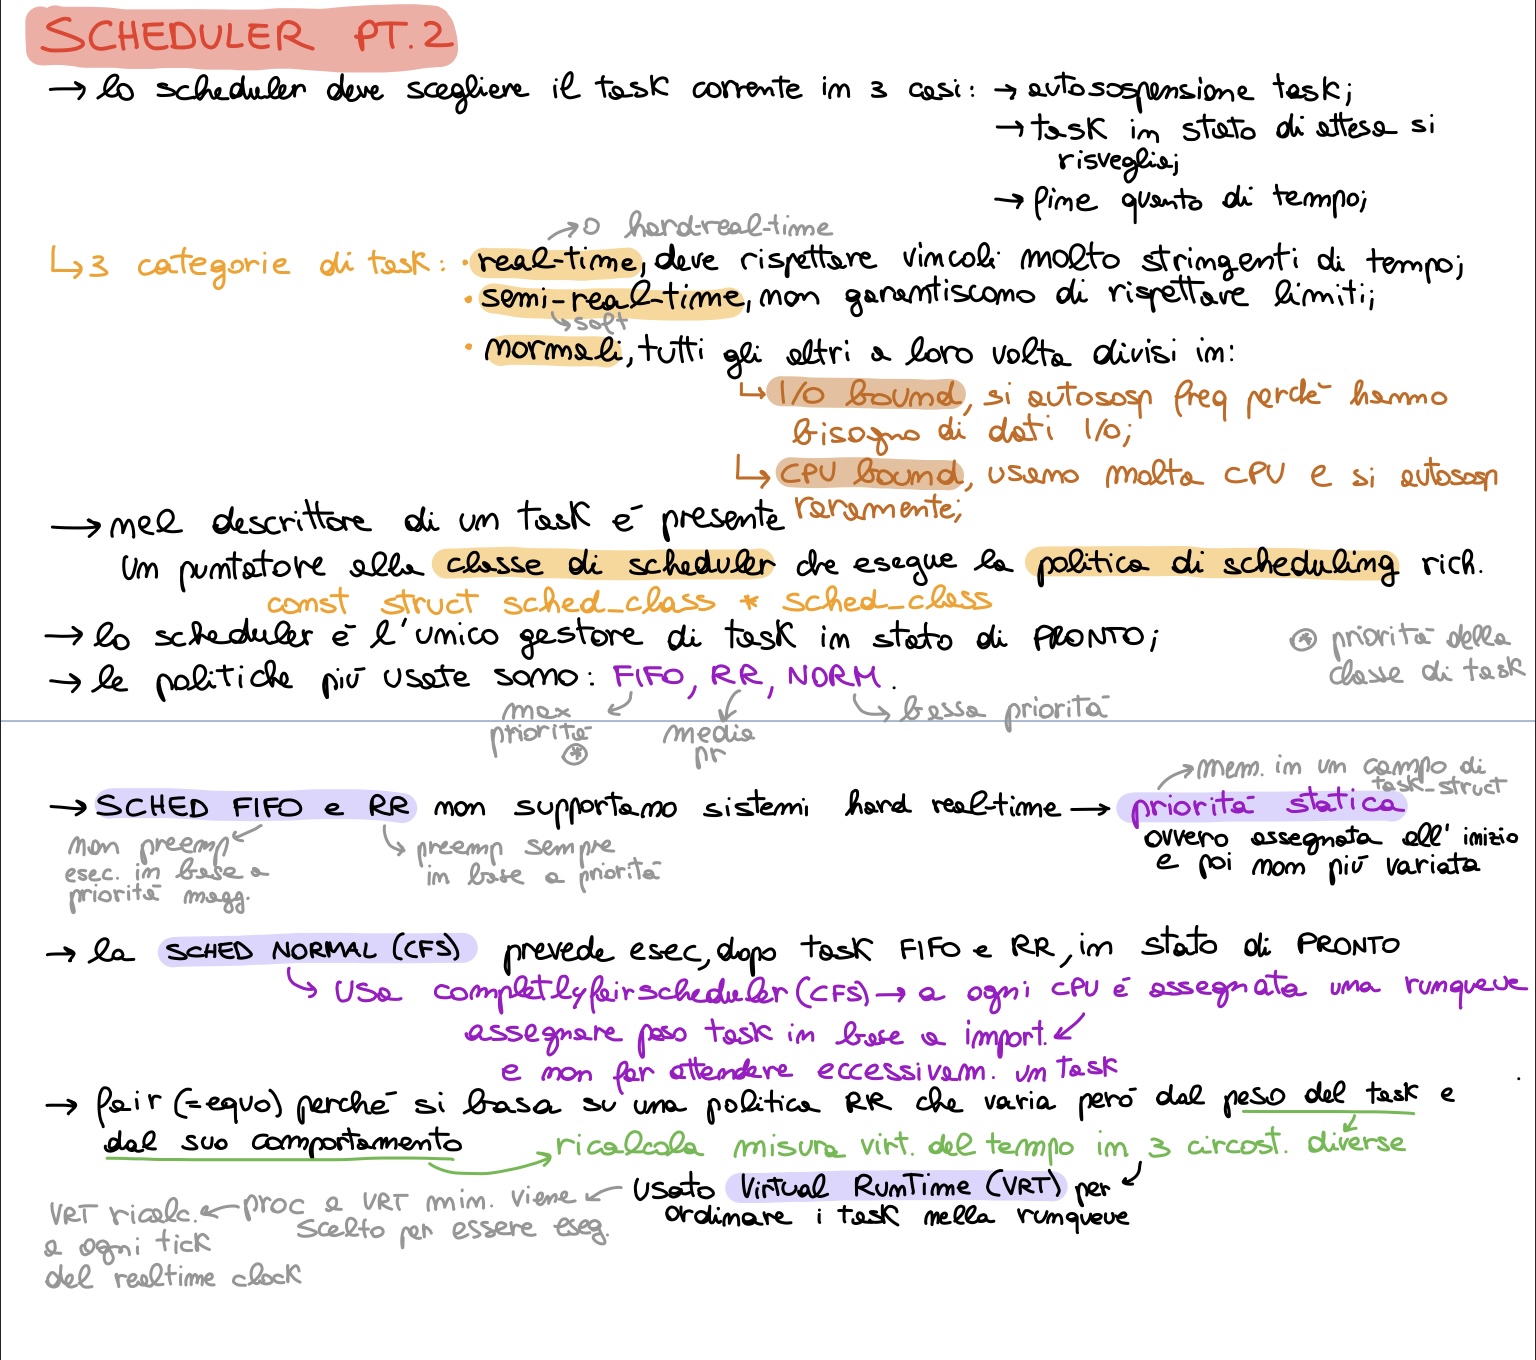 SCHEDULER PT.2
→ lo scheduler deve scegliere il task corrente in 3 casi: → autosospensione task;
→ task in stato di attesa si
risveglia;
→ fine quanto di tempo;
→ o hard-real-time
↳ 3 categorie di task: • real-time, deve rispettare vincoli molto stringenti di tempo;
• semi-real-time, non garantiscono di rispettare limiti;
↳ soft
• normali, tutti gli altri a loro volta divisi in:
↳ I/O bound, si autososp freq perchè hanno
bisogno di dati I/O;
↳ CPU bound, usano molta CPU e si autososp
raramente;
→ nel descrittore di un task è presente
un puntatore alla classe di scheduler che esegue la politica di scheduling rich.
const struct sched_class * sched_class
→ lo scheduler è l'unico gestore di task in stato di PRONTO;
* priorità della
classe di task
→ le politiche più usate sono: FIFO, RR, NORM.
max
priorità
*
media
pr
↳ bassa priorità
→ mem. in un campo di
task_struct
→ SCHED FIFO e RR non supportano sistemi hard real-time → priorità statica
ovvero assegnata all'inizio
e poi non più variata
non preemp
esec. in base a
priorità magg.
→ preemp sempre
in base a priorità
→ la SCHED NORMAL (CFS) prevede esec, dopo task FIFO e RR, in stato di PRONTO
↳ usa completlyfairscheduler (CFS) → a ogni CPU è assegnata una runqueue
assegnare peso task in base a import. ↙
e non far attendere eccessivam. un task
→ fair (=equo) perchè si basa su una politica RR che varia però dal peso del task e
dal suo comportamento → ricalcola misura virt. del tempo in 3 circost. diverse
usato Virtual RunTime (VRT) per
ordinare i task nella runqueue
← proc a VRT min. viene
scelto per essere eseg.
VRT ricalc. ←
a ogni tick
del realtime clock